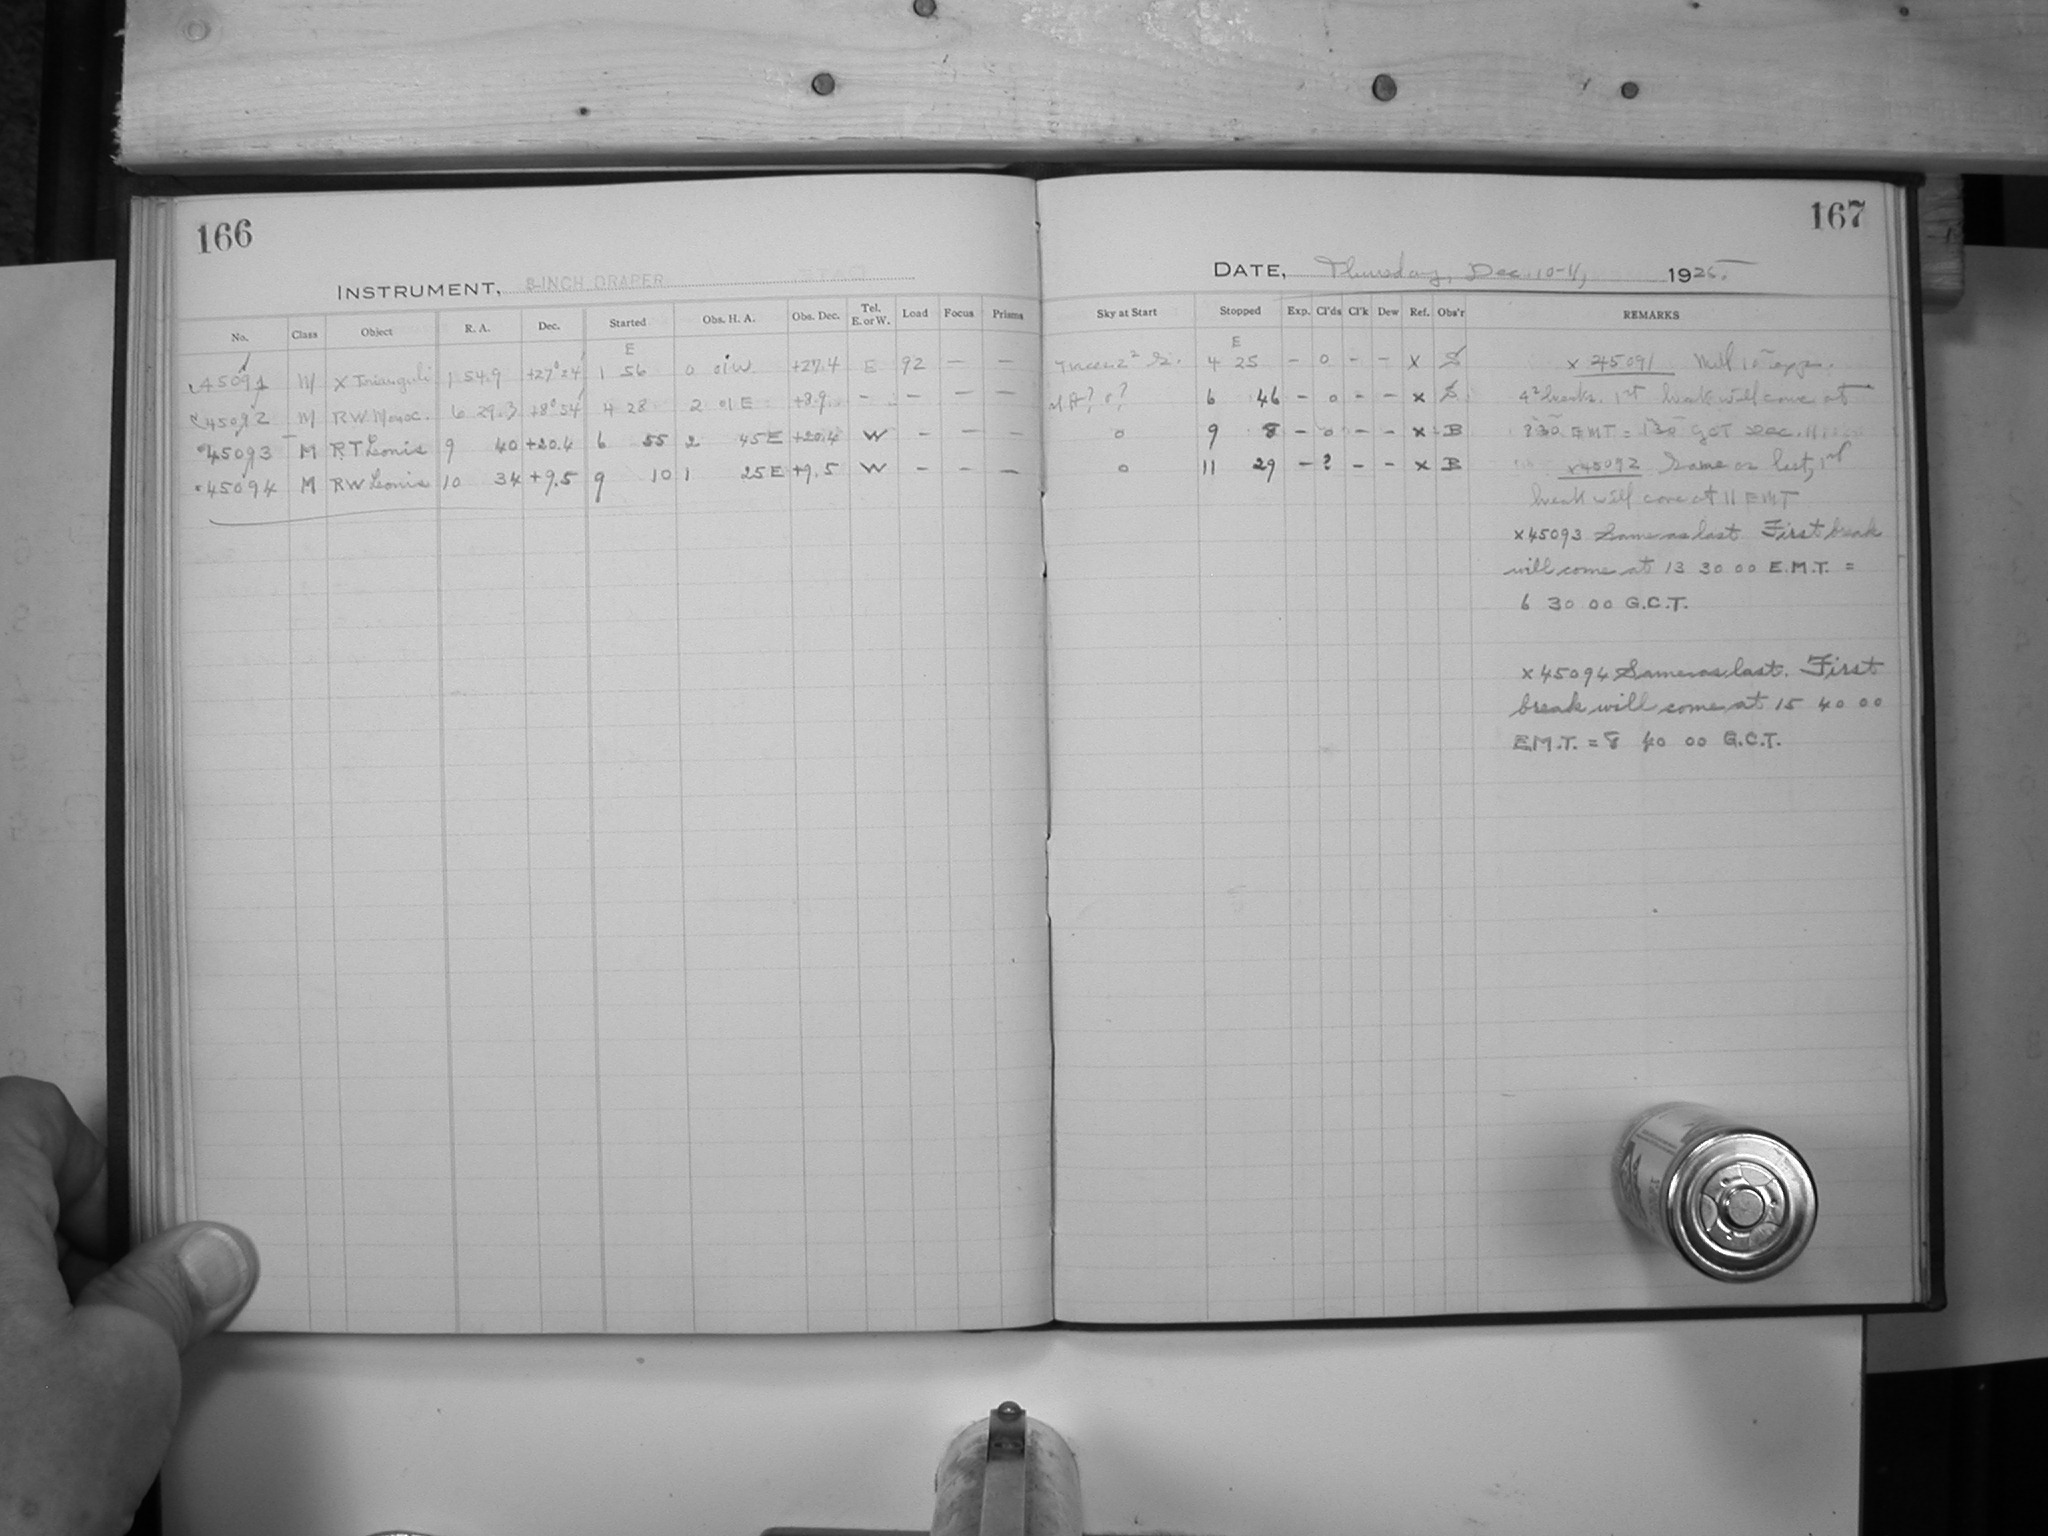 166
167
INSTRUMENT, 8-INCH DRAPER
DATE, Thursday, Dec. 10-11, 1925
No. Class Object R. A. Dec. Started Obs. H. A. Obs. Dec. Tel. E. or W. Load Focus Prisms Sky at Start Stopped Exp. Cl'ds Cl'k Dew Ref. Obs'r REMARKS
E E
45091 M X Trianguli 1 54.9 +27°24' 1 56 0 01W +27.4 E 92 — — 4 25 – 0 – – x S x 45091 Mult 10 exps.
45092 M RW Monoc. 6 29.3 +8°54' 4 28 2 01E +8.9 – – – – 6 46 – 0 – – x S breaks. 1st break will come at
45093 M RT Leonis 9 40 +20.4 6 55 2 45E +20.4 W – – – 0 9 8 – 0 – – x B 830 EMT = 130 GCT Dec. 11
45094 M RW Leonis 10 34 +9.5 9 10 1 25E +9.5 W – – – 0 11 29 – ? – – x B x45092 Same as last, 1st
break will come at 11 EMT
x45093 Same as last First break
will come at 13 30 00 E.M.T. =
6 30 00 G.C.T.
x45094 Same as last. First
break will come at 15 40 00
E.M.T. = 8 40 00 G.C.T.